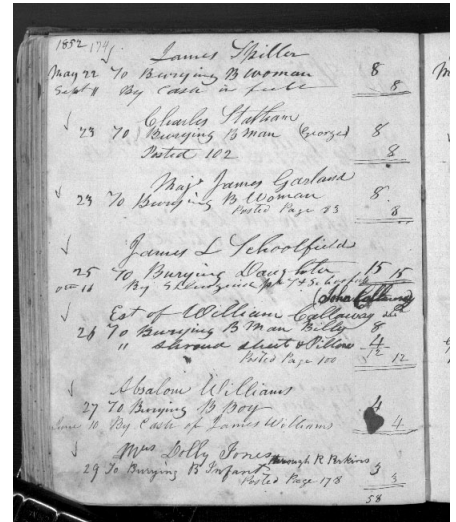 1852 174
James Spiller
May 22 To Burying B Woman 8
Sept 11 By Cash in full 8
Charles Statham
23 To Burying B Man (George) 8
Posted 102 8
Maj James Garland
23 To Burying B Woman 8
Posted Page 83 8
James L Schoolfield
25 To Burying Daughter 15
By 15
(John Callaway)
Est of William Callaway
26 To Burying B Man Billy 8
" Shroud sheet & Pillow 4
Posted Page 100 12
Absalom Williams
27 To Burying B Boy 4
June 10 By Cash of James Williams 4
Mrs Dolly Jones through R Perkins
29 To Burying B Infant 3
Posted Page 178 3
58